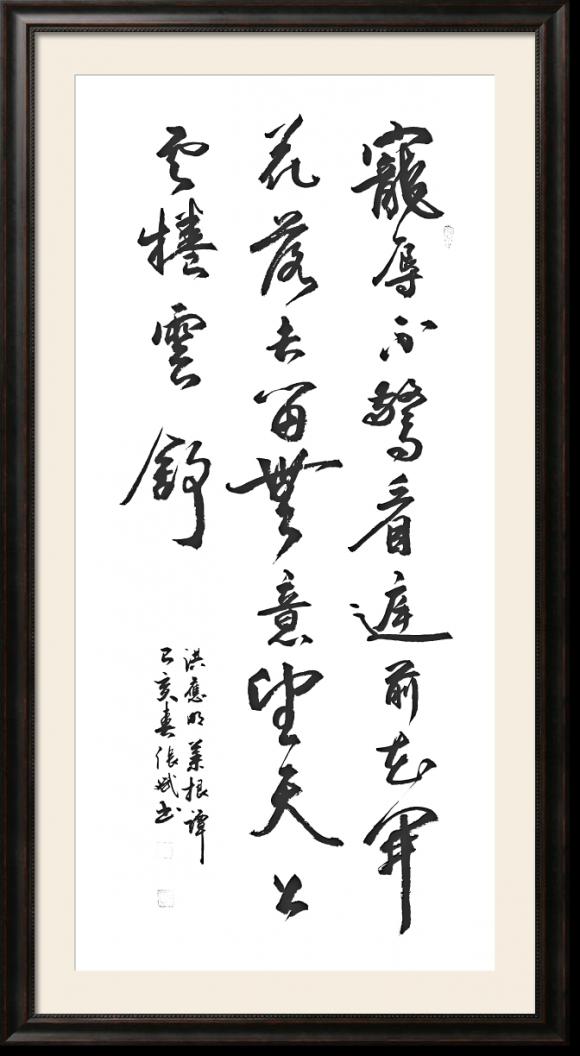 寵辱不驚看庭前花開
花落去留無意望天上
云捲雲舒
洪應明菜根譚
己亥春張斌书